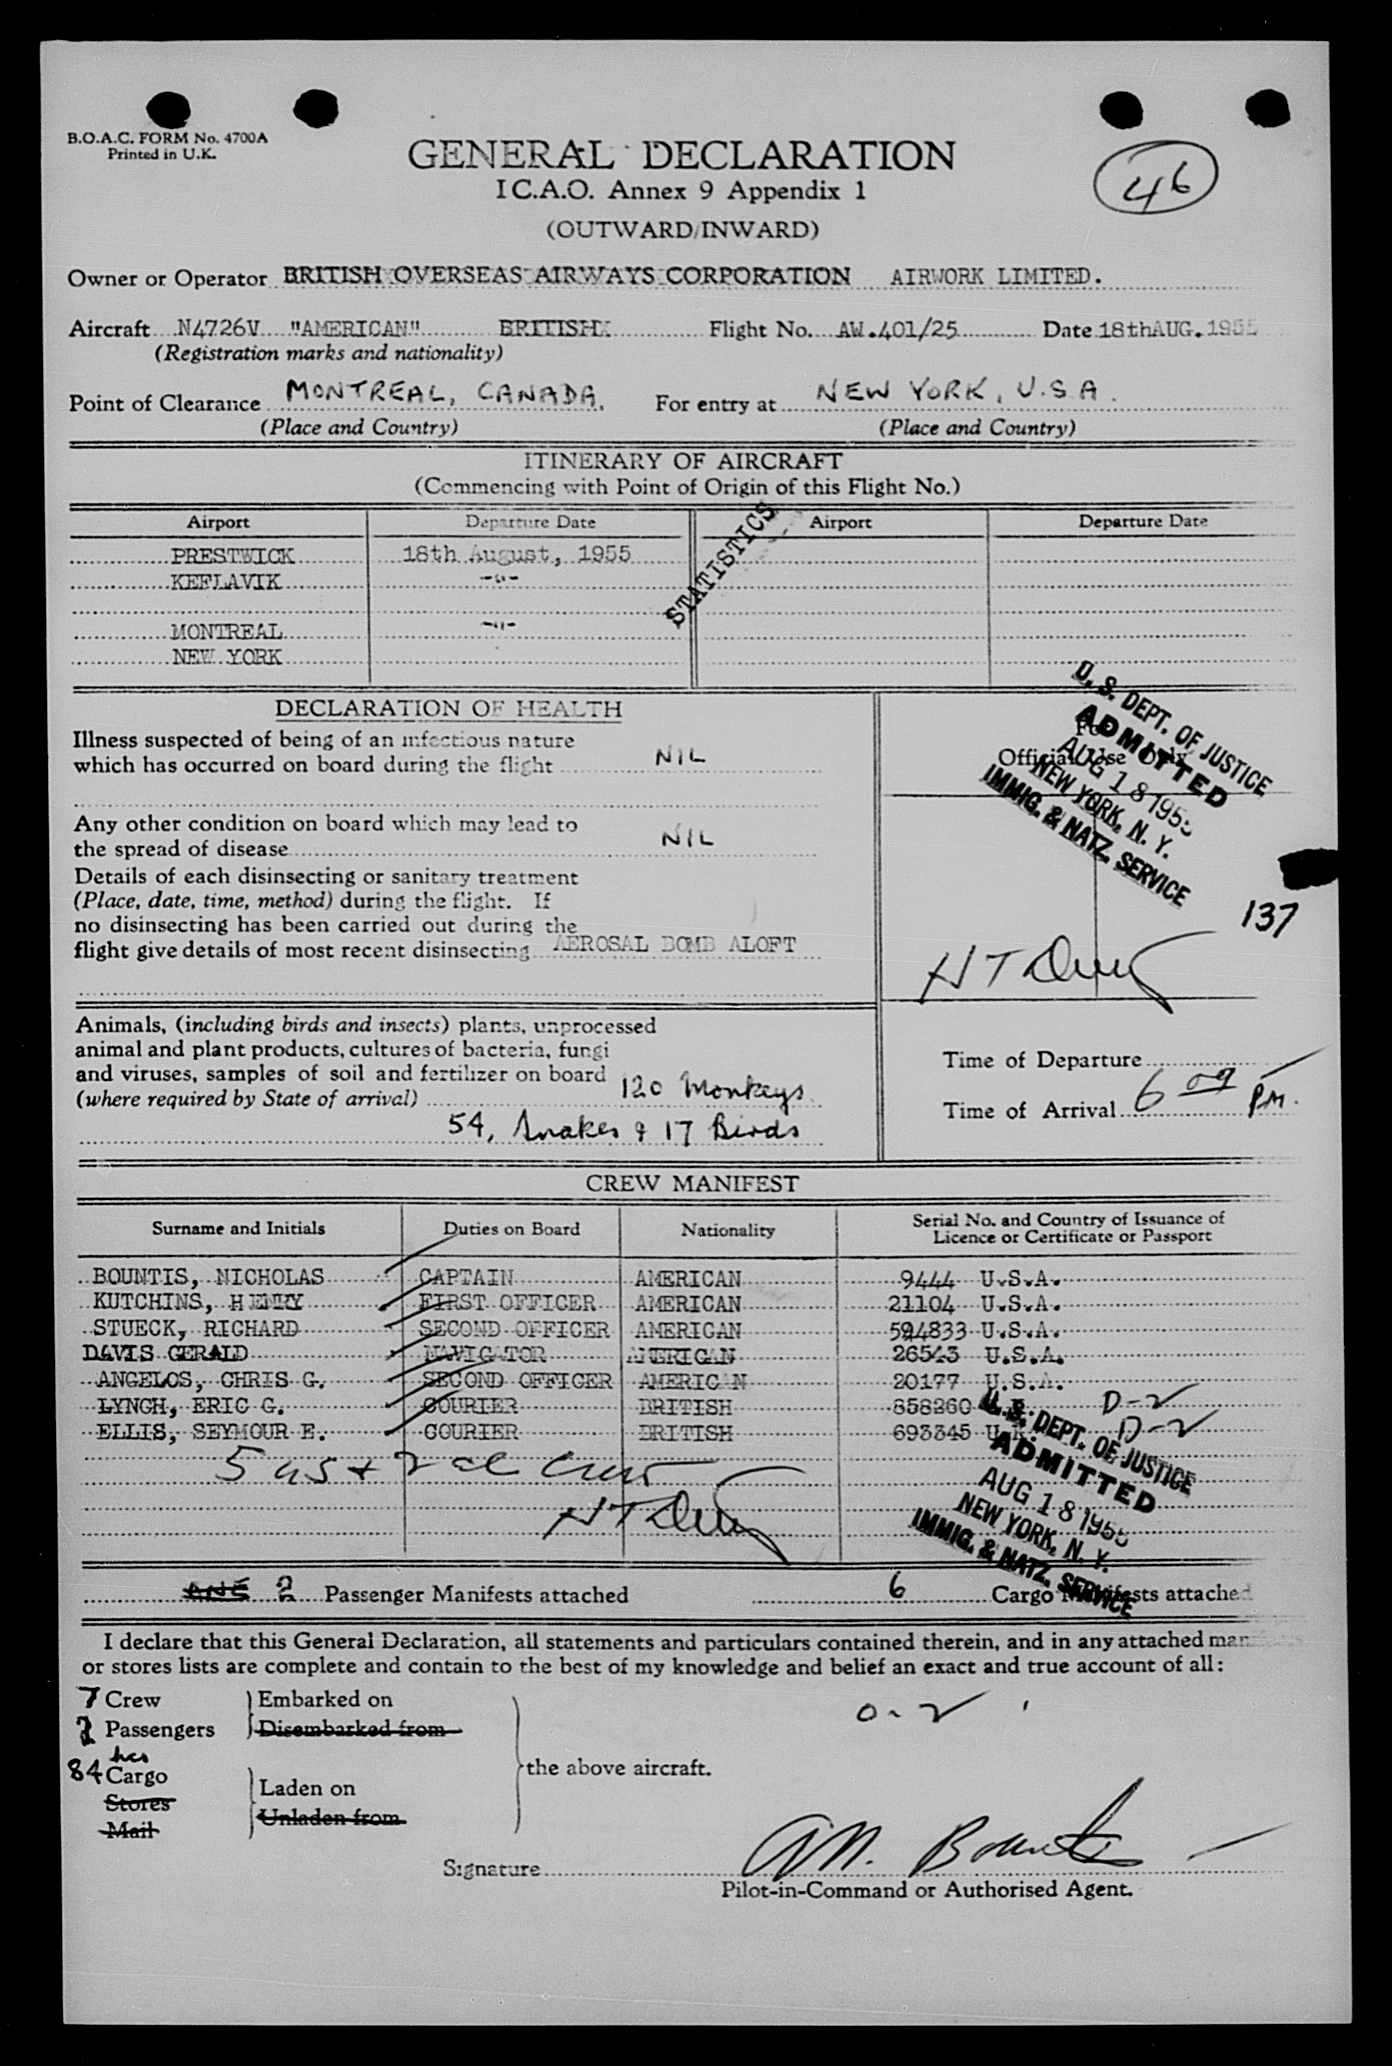 B.O.A.C. FORM No. 4700A
Printed in U.K.
GENERAL DECLARATION
I C.A.O. Annex 9 Appendix 1
(OUTWARD/INWARD)
46
Owner or Operator BRITISH OVERSEAS AIRWAYS CORPORATION AIRWORK LIMITED.
Aircraft N4726V "AMERICAN" BRITISH Flight No. AW.401/25 Date 18thAUG.1955
(Registration marks and nationality)
Point of Clearance MONTREAL, CANADA. For entry at NEW YORK, U.S.A.
(Place and Country) (Place and Country)
ITINERARY OF AIRCRAFT
(Commencing with Point of Origin of this Flight No.)
Airport Departure Date Airport Departure Date
PRESTWICK 18th August, 1955
KEFLAVIK -"-
MONTREAL -"-
NEW YORK
STATISTICS
DECLARATION OF HEALTH
Illness suspected of being of an infectious nature
which has occurred on board during the flight NIL
Any other condition on board which may lead to
the spread of disease NIL
Details of each disinsecting or sanitary treatment
(Place, date, time, method) during the flight. If
no disinsecting has been carried out during the
flight give details of most recent disinsecting AEROSAL BOMB ALOFT
For
Official Use Only
U.S. DEPT. OF JUSTICE
ADMITTED
AUG 18 1955
NEW YORK, N. Y.
IMMIG. & NATZ. SERVICE
137
Animals, (including birds and insects) plants, unprocessed
animal and plant products, cultures of bacteria, fungi
and viruses, samples of soil and fertilizer on board
(where required by State of arrival) 120 Monkeys
54, Snakes & 17 Birds
Time of Departure
Time of Arrival 6 09 PM.
CREW MANIFEST
Surname and Initials Duties on Board Nationality Serial No. and Country of Issuance of
Licence or Certificate or Passport
BOUNTIS, NICHOLAS CAPTAIN AMERICAN 9444 U.S.A.
KUTCHINS, HENRY FIRST OFFICER AMERICAN 21104 U.S.A.
STUECK, RICHARD SECOND OFFICER AMERICAN 594833 U.S.A.
DAVIS GERALD NAVIGATOR AMERICAN 26543 U.S.A.
ANGELOS, CHRIS G. SECOND OFFICER AMERICAN 20177 U.S.A.
LYNCH, ERIC G. COURIER BRITISH 858260 U.K. D-2
ELLIS, SEYMOUR E. COURIER BRITISH 693345 U.K. D-2
5 us + 2 al Crew
U.S. DEPT. OF JUSTICE
ADMITTED
AUG 18 1955
NEW YORK, N. Y.
IMMIG. & NATZ. SERVICE
ONE 2 Passenger Manifests attached 6 Cargo Manifests attached
I declare that this General Declaration, all statements and particulars contained therein, and in any attached manifests
or stores lists are complete and contain to the best of my knowledge and belief an exact and true account of all:
7 Crew Embarked on
2 Passengers Disembarked from
the above aircraft.
84 Cargo Laden on
Stores Unladen from
Mail
0-2
Signature
Pilot-in-Command or Authorised Agent.